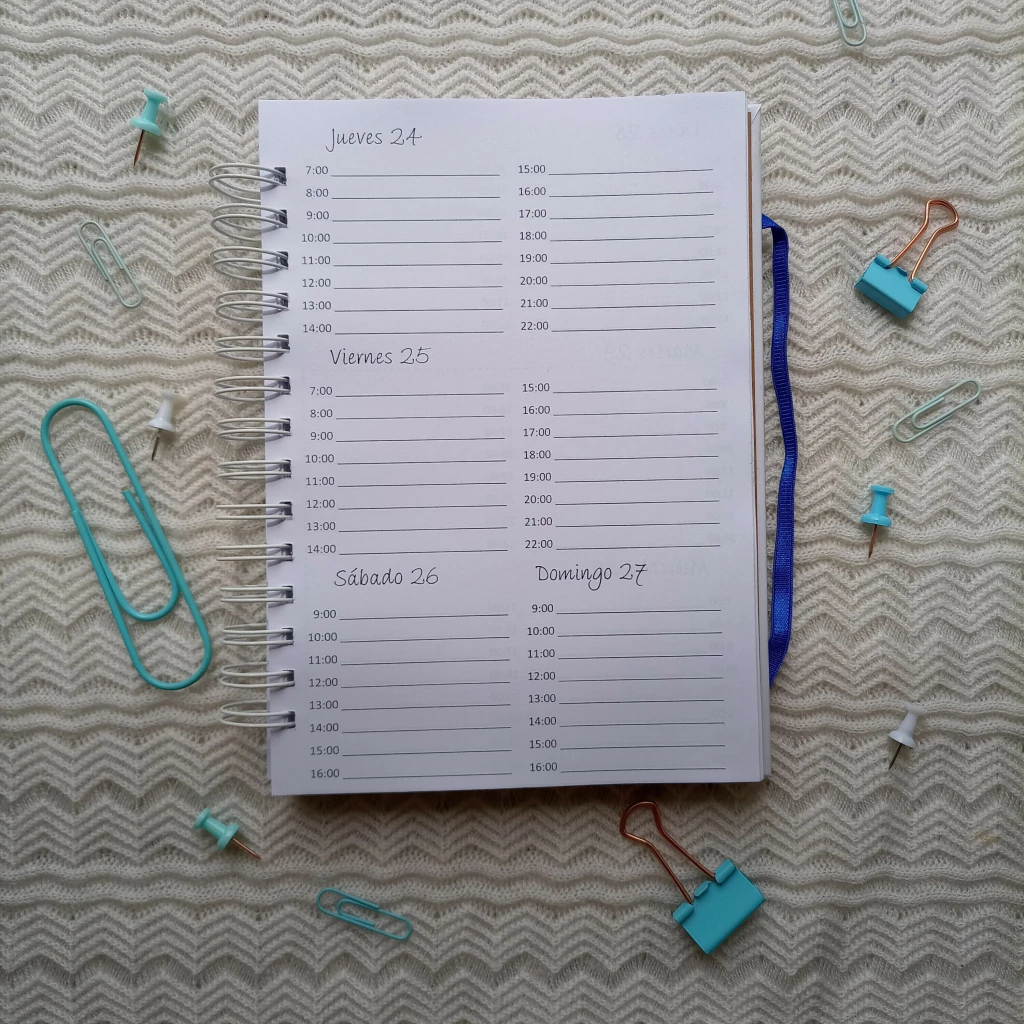 Jueves 24
7:00
8:00
9:00
10:00
11:00
12:00
13:00
14:00
15:00
16:00
17:00
18:00
19:00
20:00
21:00
22:00
Viernes 25
7:00
8:00
9:00
10:00
11:00
12:00
13:00
14:00
15:00
16:00
17:00
18:00
19:00
20:00
21:00
22:00
Sábado 26
9:00
10:00
11:00
12:00
13:00
14:00
15:00
16:00
Domingo 27
9:00
10:00
11:00
12:00
13:00
14:00
15:00
16:00